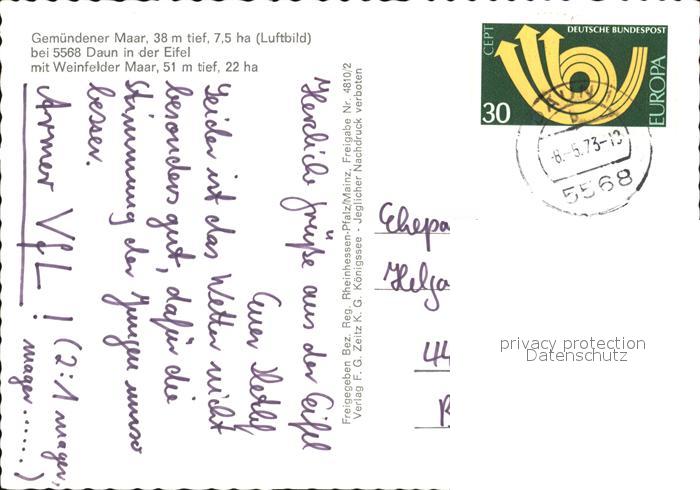 Gemündener Maar, 38 m tief, 7,5 ha (Luftbild)
bei 5568 Daun in der Eifel
mit Weinfelder Maar, 51 m tief, 22 ha
Herzliche Grüße aus der Eifel
Euer Detlef
Leider ist das Wetter nicht
besonders gut, dafür die
Stimmung der Jungen umso
besser.
Armer VfL! (2:1 mager,
mager......)
Freigegeben Bez. Reg. Rheinhessen-Pfalz/Mainz, Freigabe Nr. 4810/2
Verlag F. G. Zeitz K. G. Königssee - Jeglicher Nachdruck verboten
CEPT
DEUTSCHE BUNDESPOST
EUROPA
30
DAUN
-8.-5.73-13
5568
Ehepa
Helga
44
privacy protection
Datenschutz